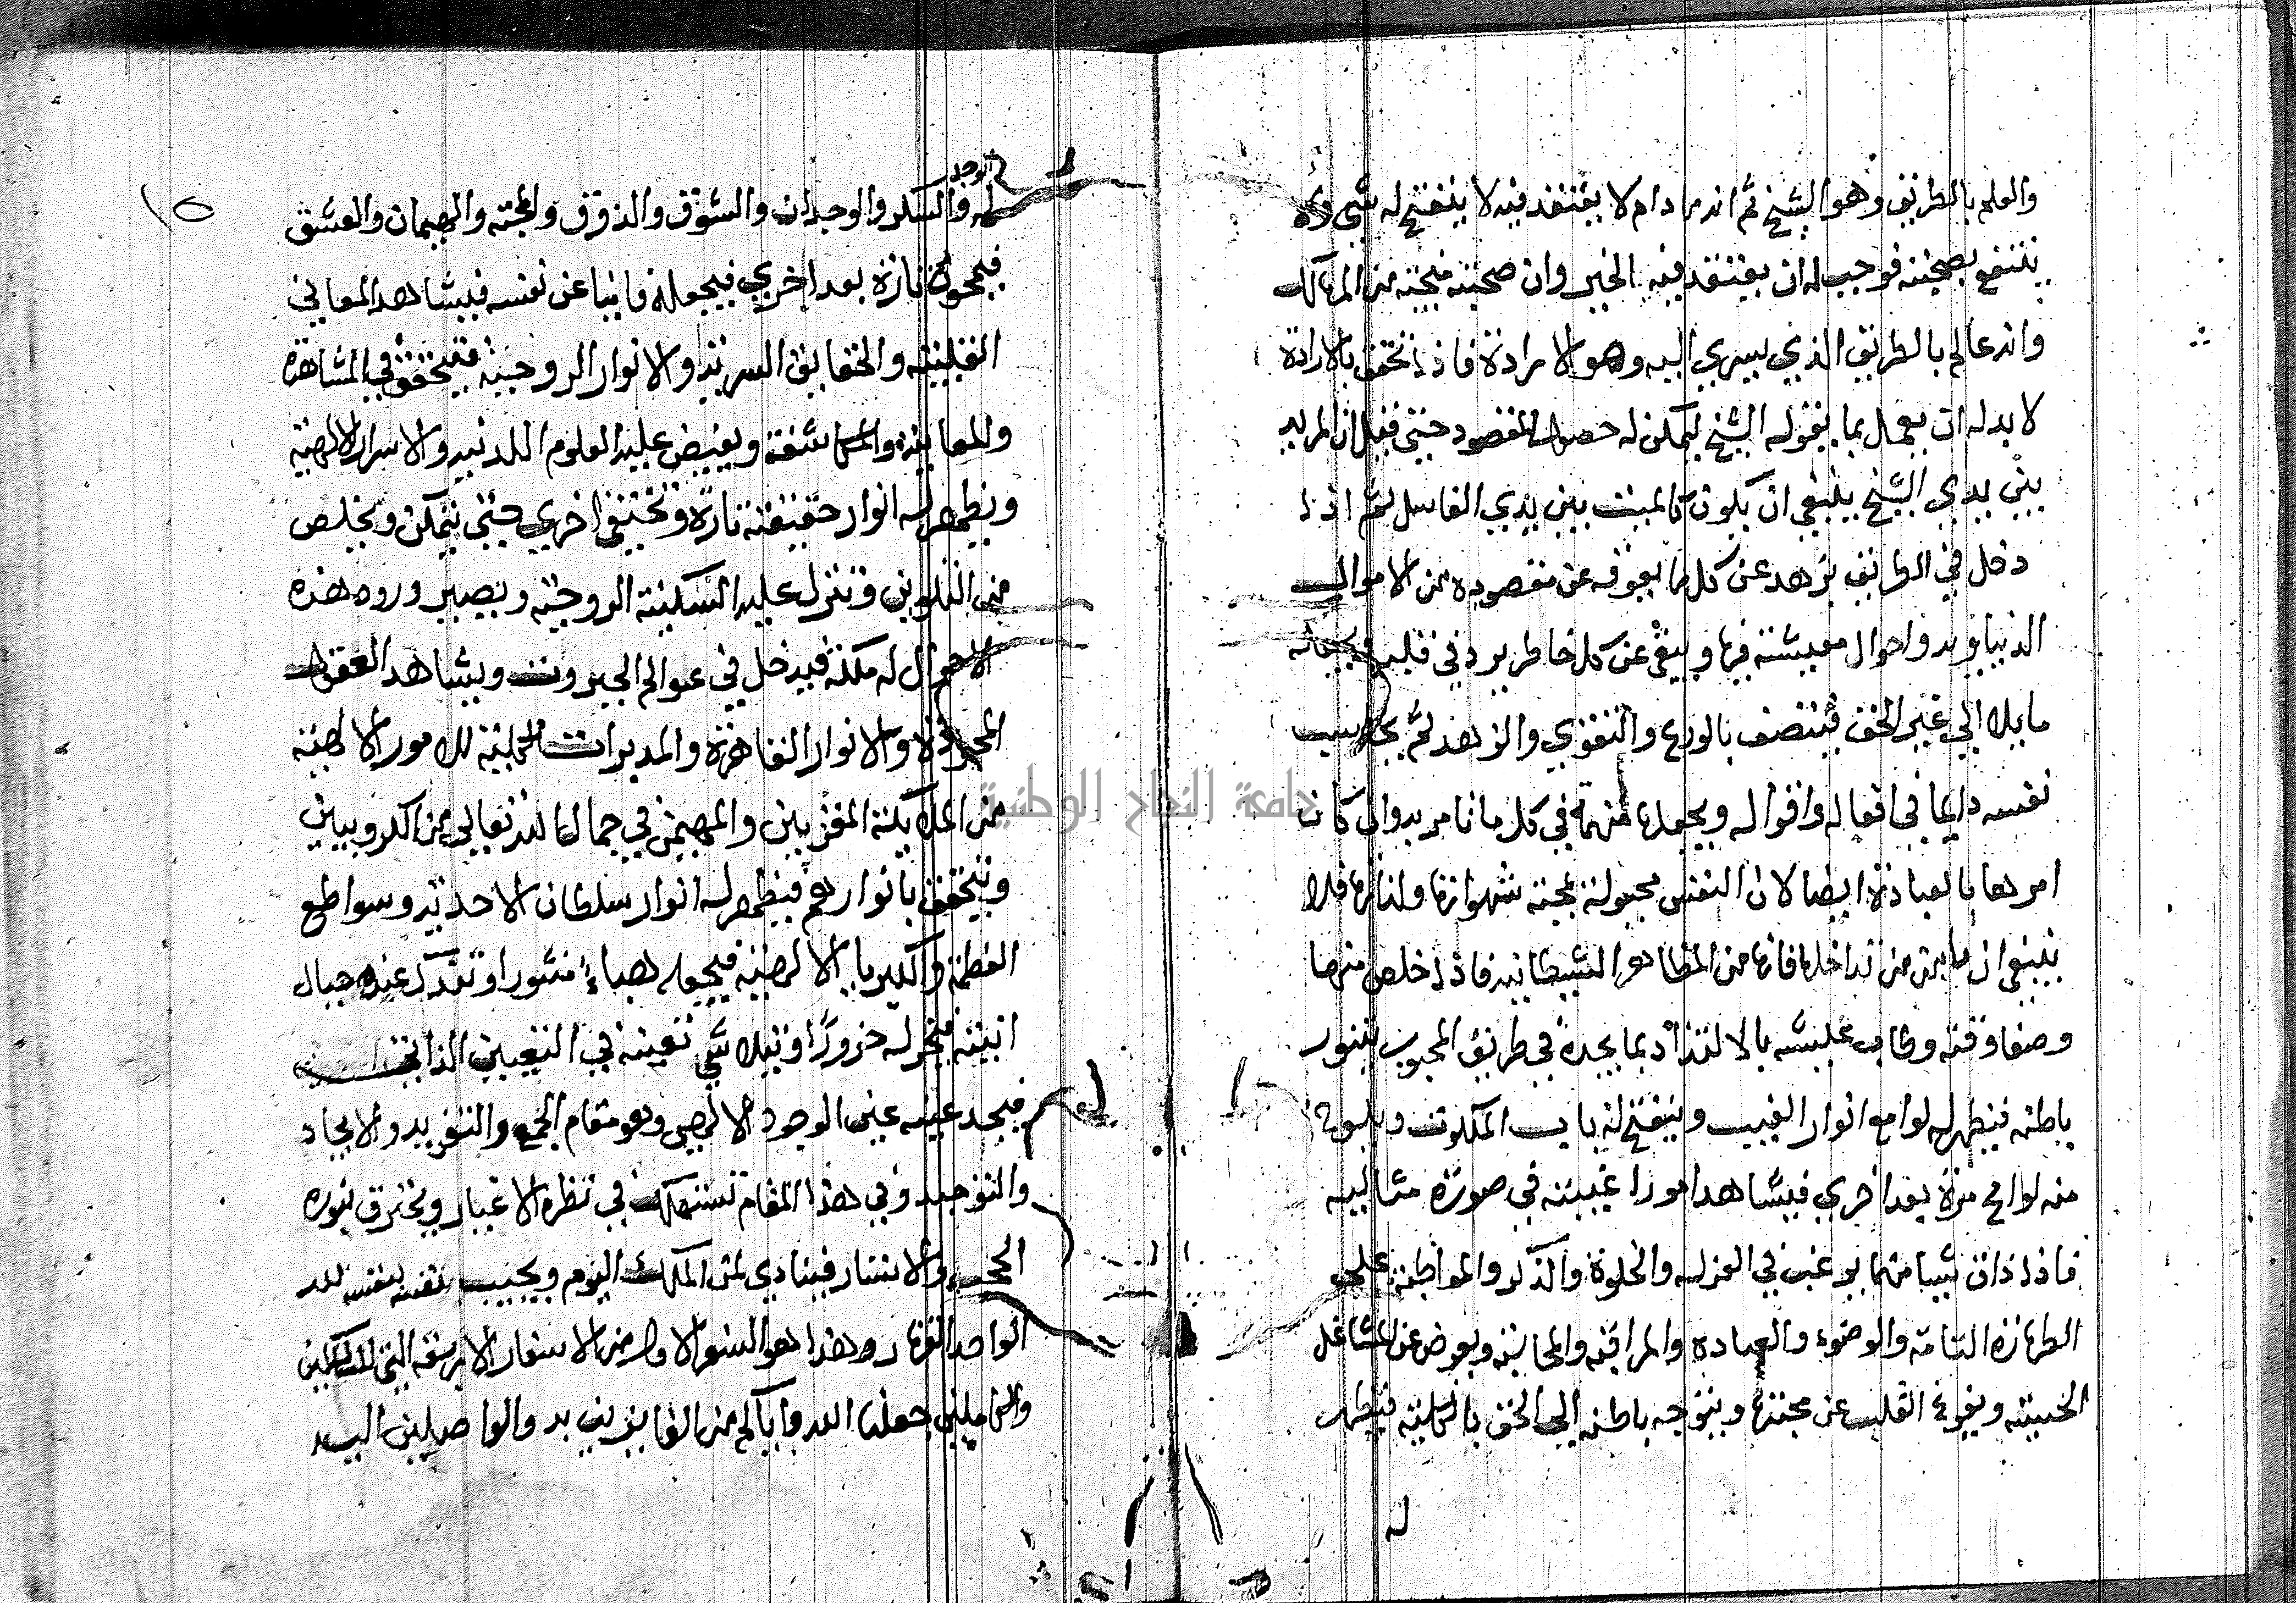 والعلم بالطريق وهو الشيخ ثم انه ما دام لا يعتقد فيه لا ينفتح له شي ولا
ينتفع بصحبته فوجب له ان يعتقد فيه الخير وان صحبته منجية من المهالك
وانه عالم بالطريق الذي يسري اليه وهو الارادة فاذا تحقق بالارادة
لا بد له ان يعمل بما يقوله الشيخ ليمكن له حصول المقصود حتي قيل ان المريد
بين يدي الشيخ ينبغي ان يكون كالميت بين يدي الغاسل ثم اذا
دخل في الطريق يزهد عن كل ما يعوقه عن مقصوده من الاموال
الدنياويه واحوال معيشته فيها وينقي عن كل خاطر يرد في قلبه ويجعله
مايلا الي غير الحق فيتصف بالورع والتقوي والزهد ثم يحاسب
نفسه دايما في افعاله واقواله ويجعلها متهمة في كل ما تامر به وان كان
امرها بالعبادة ايضا لان النفس مجبولة بمحبة شهواتها ولذاتها فلا
ينبغي ان يامن من تداخلها فانها من المظاهر الشيطانيه فاذا خلص منها
وصفا وقته وطاب عيشه بالالتذاذ بما يجده في طريق المحبوب يتنور
باطنه فيظهر له لوامع انوار الغيب وينفتح له باب الملكوت ويلوح
منه لوايح مرة بعد اخري فيشاهد امورا غيبية في صورة مثاليه
فاذا ذاق شيا منها يرغب في العزله والخلوة والذكر والمواظبة علي
الطهارة التامة والوضوء والعبادة والمراقبة والمحاسبة ويعرض عن المشاغل
الحسية ويفرغ القلب عن محبتها ويتوجه باطنه الي الحق بالكلية فيظهر
له
١٥
الوجد
له والسكر والوجدان والشوق والذوق والمحبة والهيمان والعشق
فيمحوه تارة بعد اخري فيجعله فانيا عن نفسه فيشاهد المعاني
القلبية والحقايق السرية والانوار الروحية فيتحقق في المشاهدة
والمعاينة والمكاشفة ويفيض عليه العلوم اللدنيه والاسرار الالهية
ويظهر له انوار حقيقة تارة وتختفي اخري حتي يتمكن ويخلص
من التلوين وتنزل عليه السكينة الروحية ويصير ورود هذه
الاحوال له ملكة فيدخل في عوالم الجبروت ويشاهد العقول
المجردة والانوار القاهرة والمدبرات الكلية للامور الالهية
من الملايكة المقربين والمهيمين في جمال الله تعالي من الكروبيين
ويتحقق بانوارهم فيظهر له انوار سلطان الاحدية وسواطع
العظمة والكبريا الالهية فيجعله هباءً منثورا وتندك عنده جبال
انيته فيخر له خرورًا ويتلاشي تعينه في التعين الذاتي
فيجد عينه عين الوجود الالهي وهو مقام الجمع والتفريد والاتحاد
والتوحيد وفي هذا المقام تستهلك في نظره الاغيار ويخترق بنوره
الحجب والاستار فينادي لمن الملك اليوم ويجيب نفسه بنفسه لله
الواحد القهار وهذا هو السفر الاول من الاسفار الاربعة التي للكاملين
والمكملين جعلنا الله واياكم من الفايزين به والواصلين اليه